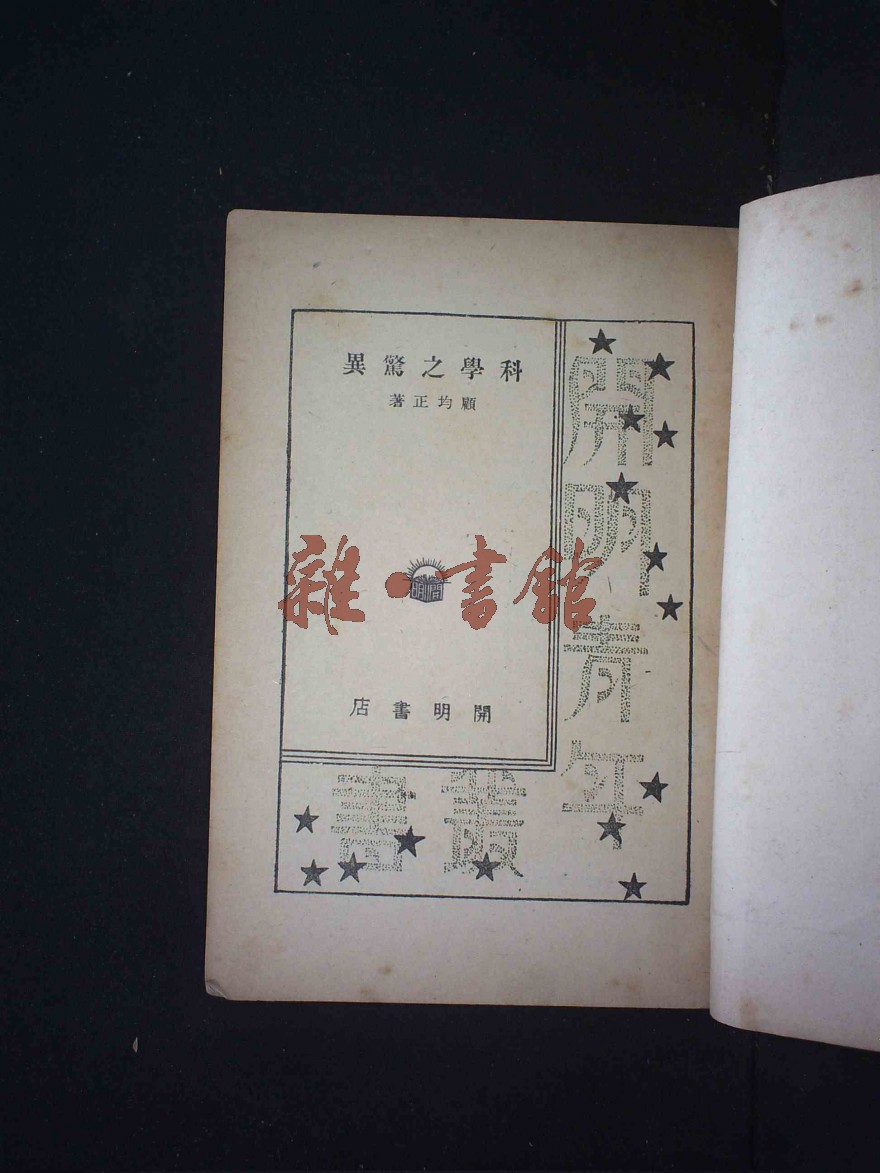 科學之驚異
顧均正著
開明
開明書店
開明青年叢書
雜·書館